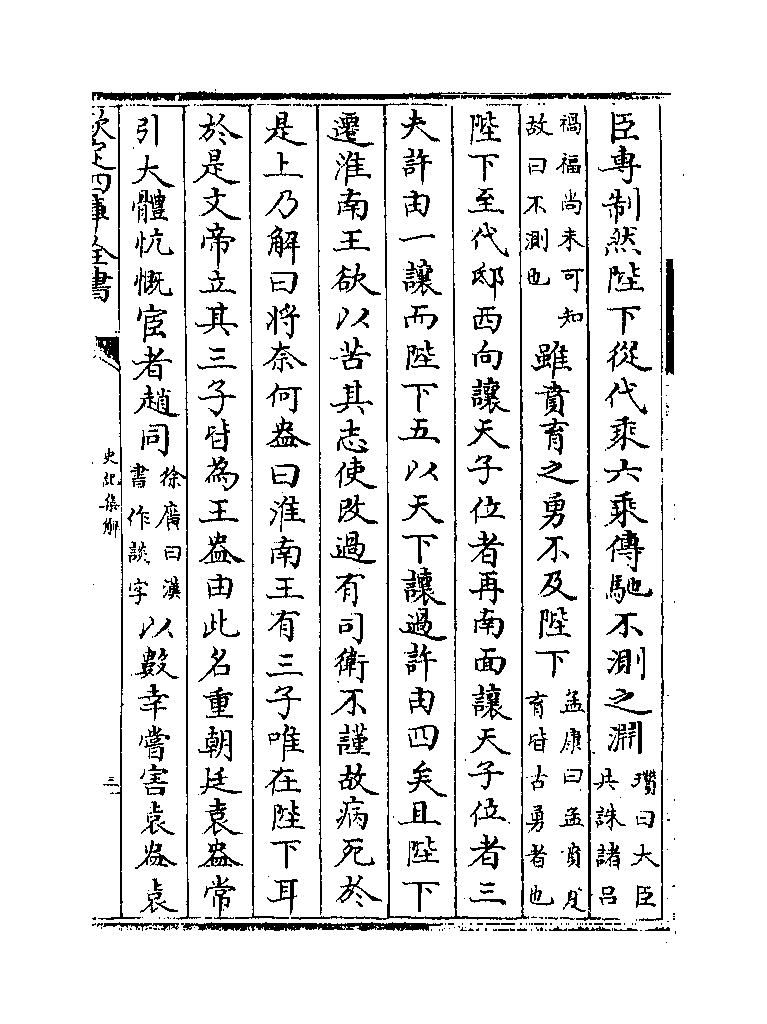 臣專制然陛下從代乘六乘傳馳不測之淵瓚曰大臣共誅諸呂
禍福尚未可知故曰不測也雖賁育之勇不及陛下孟康曰孟賁夏育皆古勇者也
陛下至代邸西向讓天子位者再南面讓天子位者三
夫許由一讓而陛下五以天下讓過許由四矣且陛下
遷淮南王欲以苦其志使改過有司衛不謹故病死於
是上乃解曰將奈何盎曰淮南王有三子唯在陛下耳
於是文帝立其三子皆為王盎由此名重朝廷袁盎常
引大體忼慨宦者趙同徐廣曰漢書作談字以數幸嘗害袁盎袁
欽定四庫全書
史記集解
三